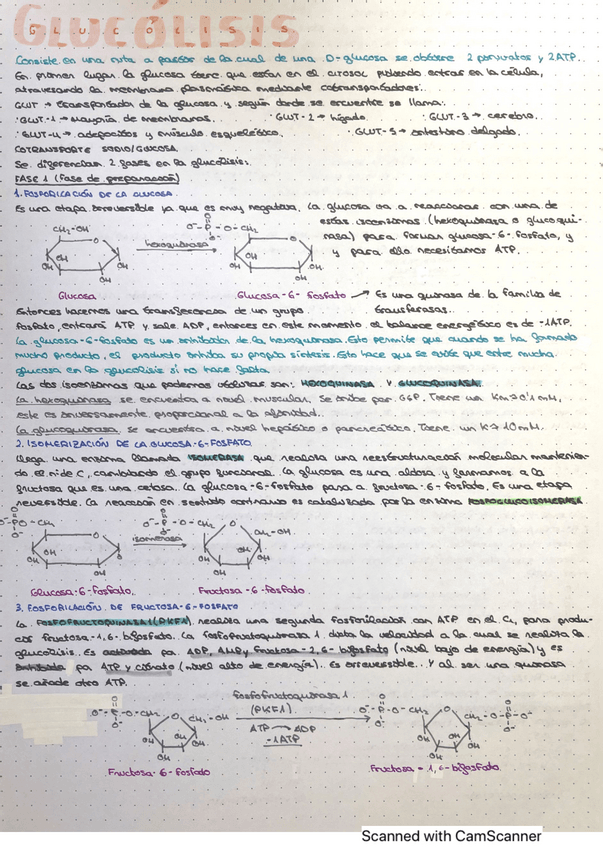 GLUCÓLISIS
GLUCOLISIS
Consiste en una ruta a partir de la cual de una D-glucosa se obtiene 2 piruvatos y 2ATP.
En primer lugar la glucosa tiene que estar en el citosol pudiendo entrar en la célula,
atravesando la membrana plasmática mediante cotransportadores:
GLUT → transportador de la glucosa y según donde se encuentre se llama:
·GLUT-1 → mayoría de membranas. ·GLUT-2 → hígado. ·GLUT-3 → cerebro.
·GLUT-4 → adipocitos y músculo esquelético. ·GLUT-5 → intestino delgado.
COTRANSPORTE SODIO/GLUCOSA.
Se diferencian 2 fases en la glucólisis:
FASE 1 (Fase de preparación)
1. FOSFORILACIÓN DE LA GLUCOSA
Es una etapa irreversible ya que es muy negativa, la glucosa va a reaccionar con una de
estas isoenzimas (hexoquinasa o glucoqui-
nasa) para formar glucosa-6-fosfato, y
y para ello necesitamos ATP.
CH₂-OH
hexoquinasa
O⁻-P-O-CH₂
Glucosa
Glucosa-6-fosfato → Es una quinasa de la familia de
transferasas.
Entonces hacemos una transferencia de un grupo
fosfato, entrará ATP y sale ADP, entonces en este momento el balance energético es de -1ATP.
La glucosa-6-fosfato es un inhibidor de la hexoquinasa. Esto permite que cuando se ha formado
mucho producto, el producto inhiba su propia síntesis. Esto hace que se evite que entre mucha
glucosa en la glucólisis si no hace falta.
Las dos isoenzimas que podemos utilizar son: HEXOQUINASA Y GLUCOQUINASA.
La hexoquinasa se encuentra a nivel muscular. Se inhibe por G6P. Tiene un Km>0'1 mM,
este es inversamente proporcional a la afinidad.
La glucoquinasa se encuentra a nivel hepático o pancreático. Tiene un K>10mM.
2. ISOMERIZACIÓN DE LA GLUCOSA-6-FOSFATO
Llega una enzima llamada ISOMERASA que realiza una reestructuración molecular mantenien-
do el nº de C, cambiando el grupo funcional. La glucosa es una aldosa y formamos a la
fructosa que es una cetosa. La glucosa-6-fosfato pasa a fructosa-6-fosfato. Es una etapa
reversible. La reacción en sentido contrario es catalizada por la enzima FOSFOGLUCOISOMERASA
isomerasa
Glucosa-6-fosfato.
Fructosa-6-fosfato
3. FOSFORILACIÓN DE FRUCTOSA-6-FOSFATO
La FOSFOFRUCTOQUINASA 1 (PKF1) realiza una segunda fosforilación con ATP en el C₁, para produ-
cir fructosa-1,6-bifosfato. La fosfofructoquinasa 1 dicta la velocidad a la cual se realiza la
glucólisis. Es activada por ADP, AMP y fructosa-2,6-bifosfato (nivel bajo de energía) y es
inhibida por ATP y citrato (nivel alto de energía). Es irreversible. Y al ser una quinasa
se añade otro ATP.
fosfofructoquinasa 1
(PKF1)
ATP → ADP
-1ATP
Fructosa-6-fosfato
Fructosa-1,6-bifosfato
Scanned with CamScanner